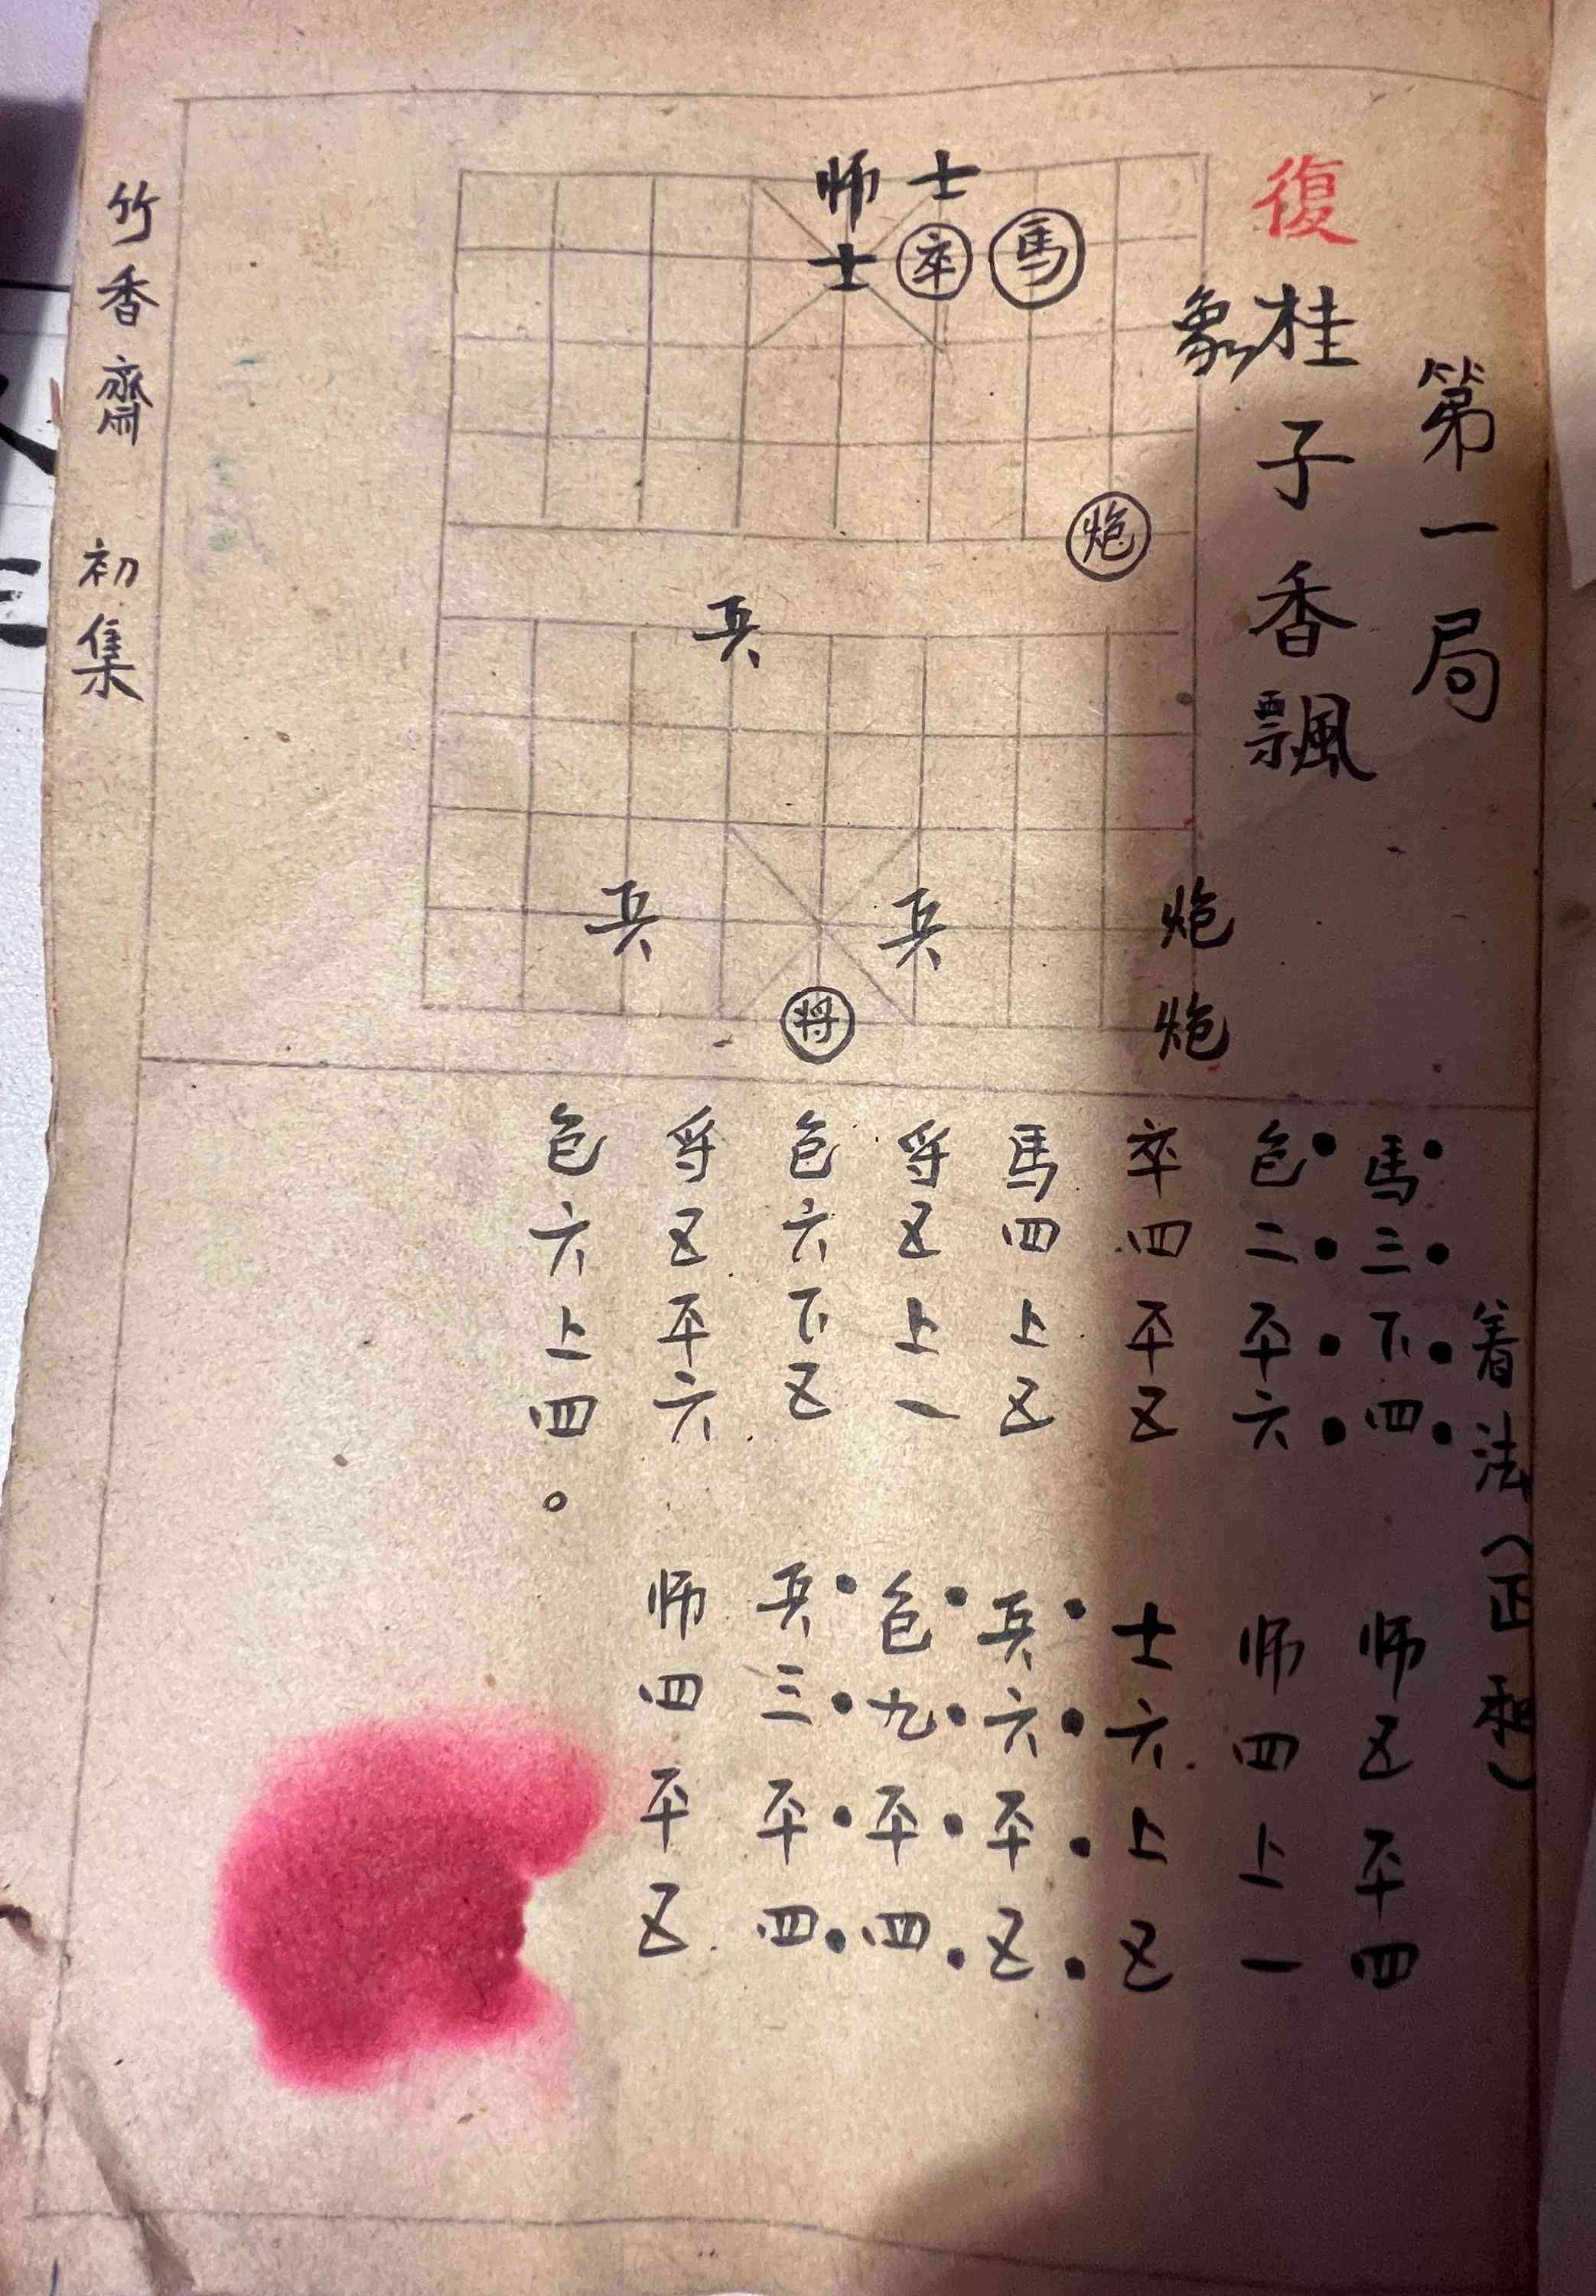 第一局
復桂子香飄
师士
士卒馬
象
炮
兵
兵兵炮
将炮
着法(正和)
馬三下四 师五平四
包二平六 师四上一
卒四平五 士六上五
馬四上五 兵六平五
将五上一 包九平四
包六下五 兵三平四
将五平六 师四平五
包六上四。
竹香齋 初集